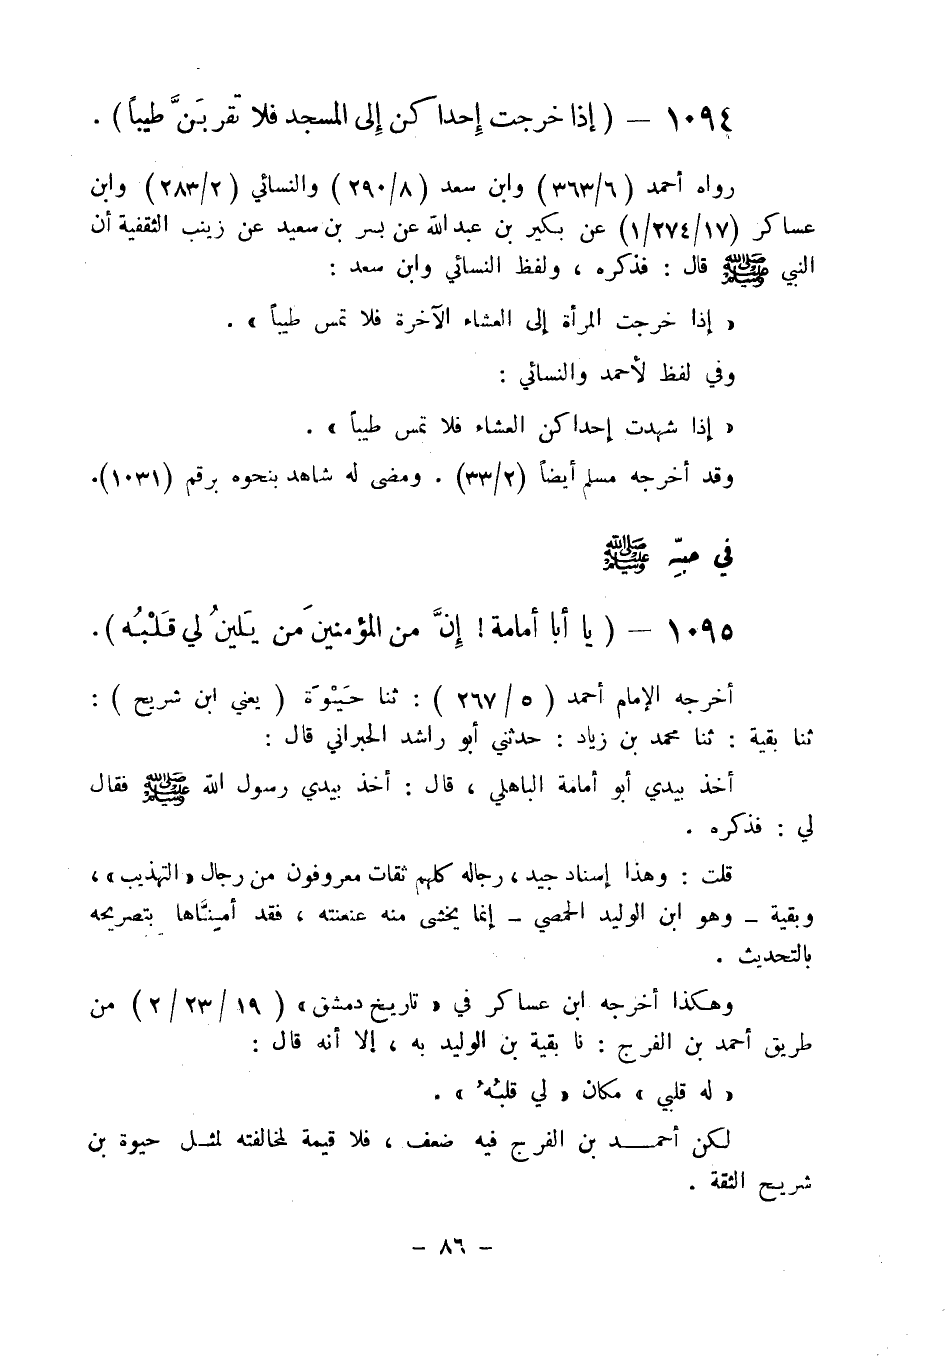 ١٠٩٤ — ( إذا خرجت إحداكن إلى المسجد فلا تقربَنَّ طيباً ) .
رواه أحمد ( ٣٦٣/٦ ) وابن سعد ( ٢٩٠/٨ ) والنسائي ( ٢٨٣/٢ ) وابن
عساكر ( ١/٢٧٤/١٧ ) عن بكير بن عبد الله عن بسر بن سعيد عن زينب الثقفية أن
النبي ﷺ قال : فذكره ، ولفظ النسائي وابن سعد :
« إذا خرجت المرأة إلى العشاء الآخرة فلا تمس طيباً » .
وفي لفظ لأحمد والنسائي :
« إذا شهدت إحداكن العشاء فلا تمس طيباً » .
وقد أخرجه مسلم أيضاً ( ٣٣/٢ ) . ومضى له شاهد بنحوه برقم (١٠٣١).
في حبِّه ﷺ
١٠٩٥ — ( يا أبا أمامة ! إنَّ من المؤمنين مَن يَلينُ لي قَلْبُه ) .
أخرجه الإمام أحمد ( ٥ / ٢٦٧ ) : ثنا حَيْوَة ( يعني ابن شريح ) :
ثنا بقية : ثنا محمد بن زياد : حدثني أبو راشد الحبراني قال :
أخذ بيدي أبو أمامة الباهلي ، قال : أخذ بيدي رسول الله ﷺ فقال
لي : فذكره .
قلت : وهذا إسناد جيد ، رجاله كلهم ثقات معروفون من رجال « التهذيب » ،
وبقية – وهو ابن الوليد الحمصي – إنما يخشى منه عنعنته ، فقد أمِنَّاها بتصريحه
بالتحديث .
وهكذا أخرجه ابن عساكر في « تاريخ دمشق » ( ١٩ / ٢٣ / ٢ ) من
طريق أحمد بن الفرج : نا بقية بن الوليد به ، إلا أنه قال :
« له قلبي » مكان « لي قلبُه » .
لكن أحمد بن الفرج فيه ضعف ، فلا قيمة لمخالفته لمثل حيوة بن
شريح الثقة .
– ٨٦ –